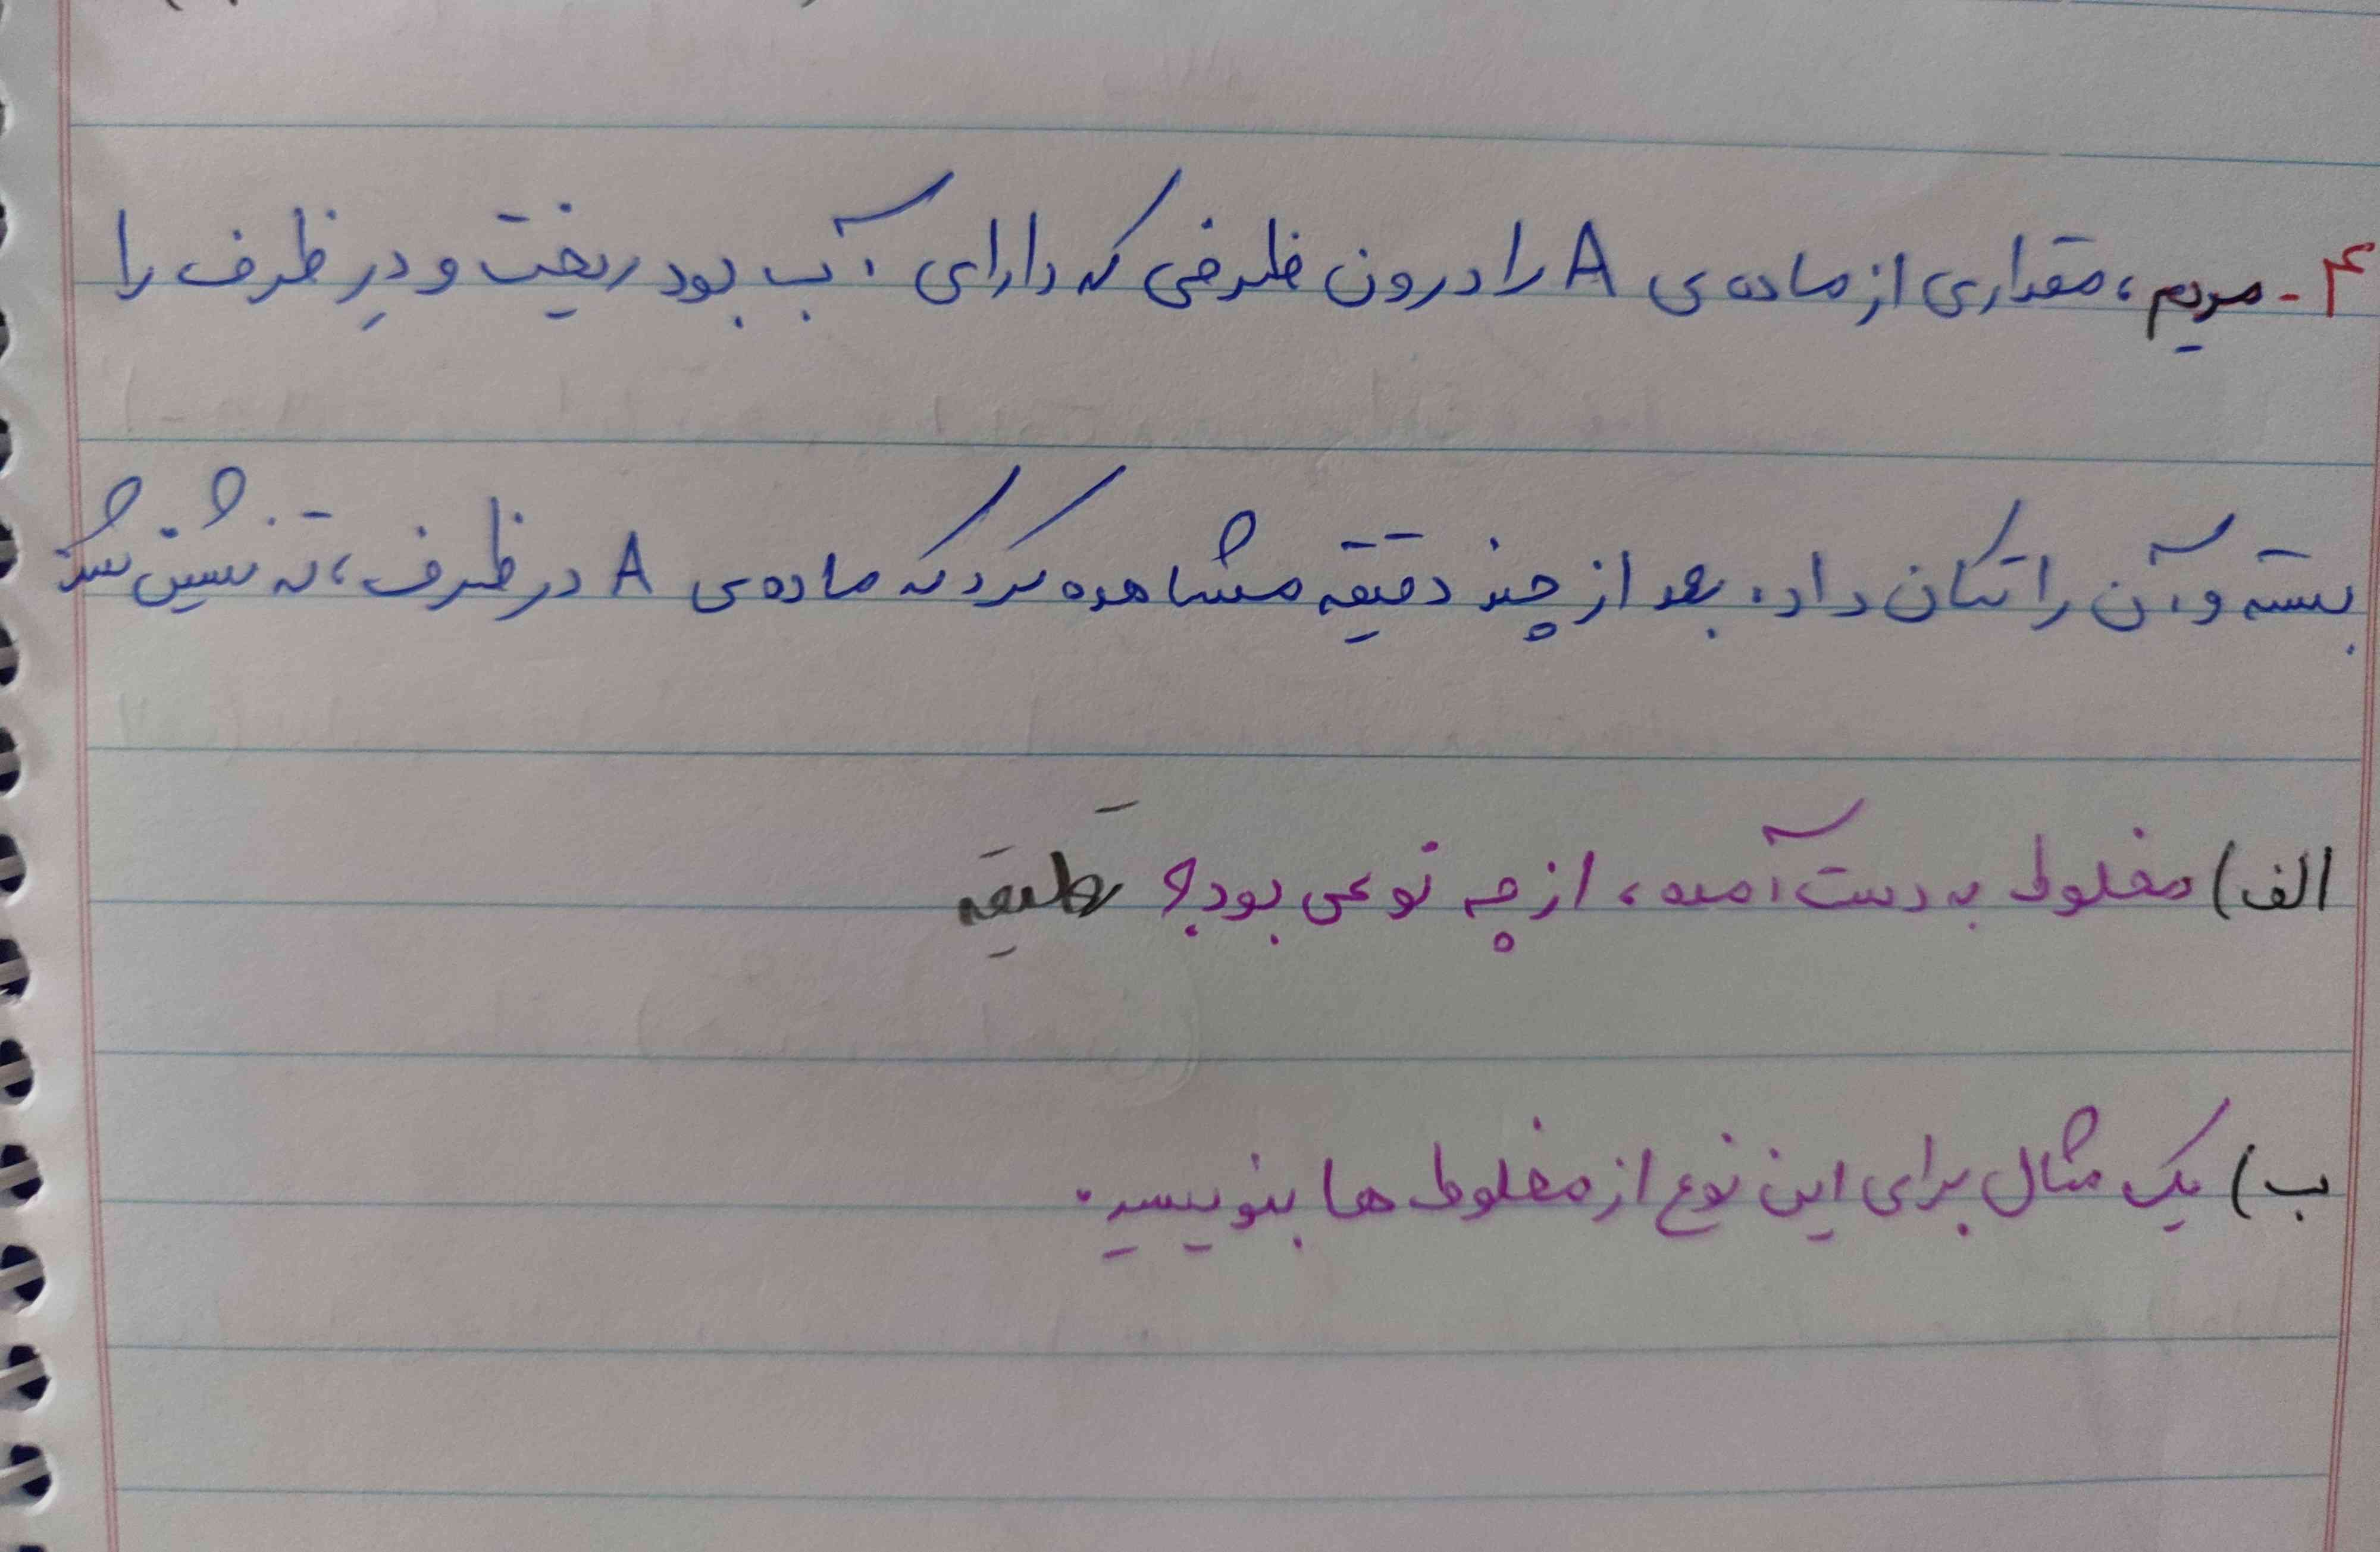 ۴- مریم، مقداری از ماده‌ی A را درون ظرفی که دارای آب بود ریخت و درِ ظرف را
بسته و آن را تکان داد. بعد از چند دقیقه مشاهده کرد که ماده‌ی A در ظرف، ته نشین شد
الف) مخلوط به دست آمده، از چه نوعی بود؟
ب) یک مثال برای این نوع از مخلوط ها بنویسید.